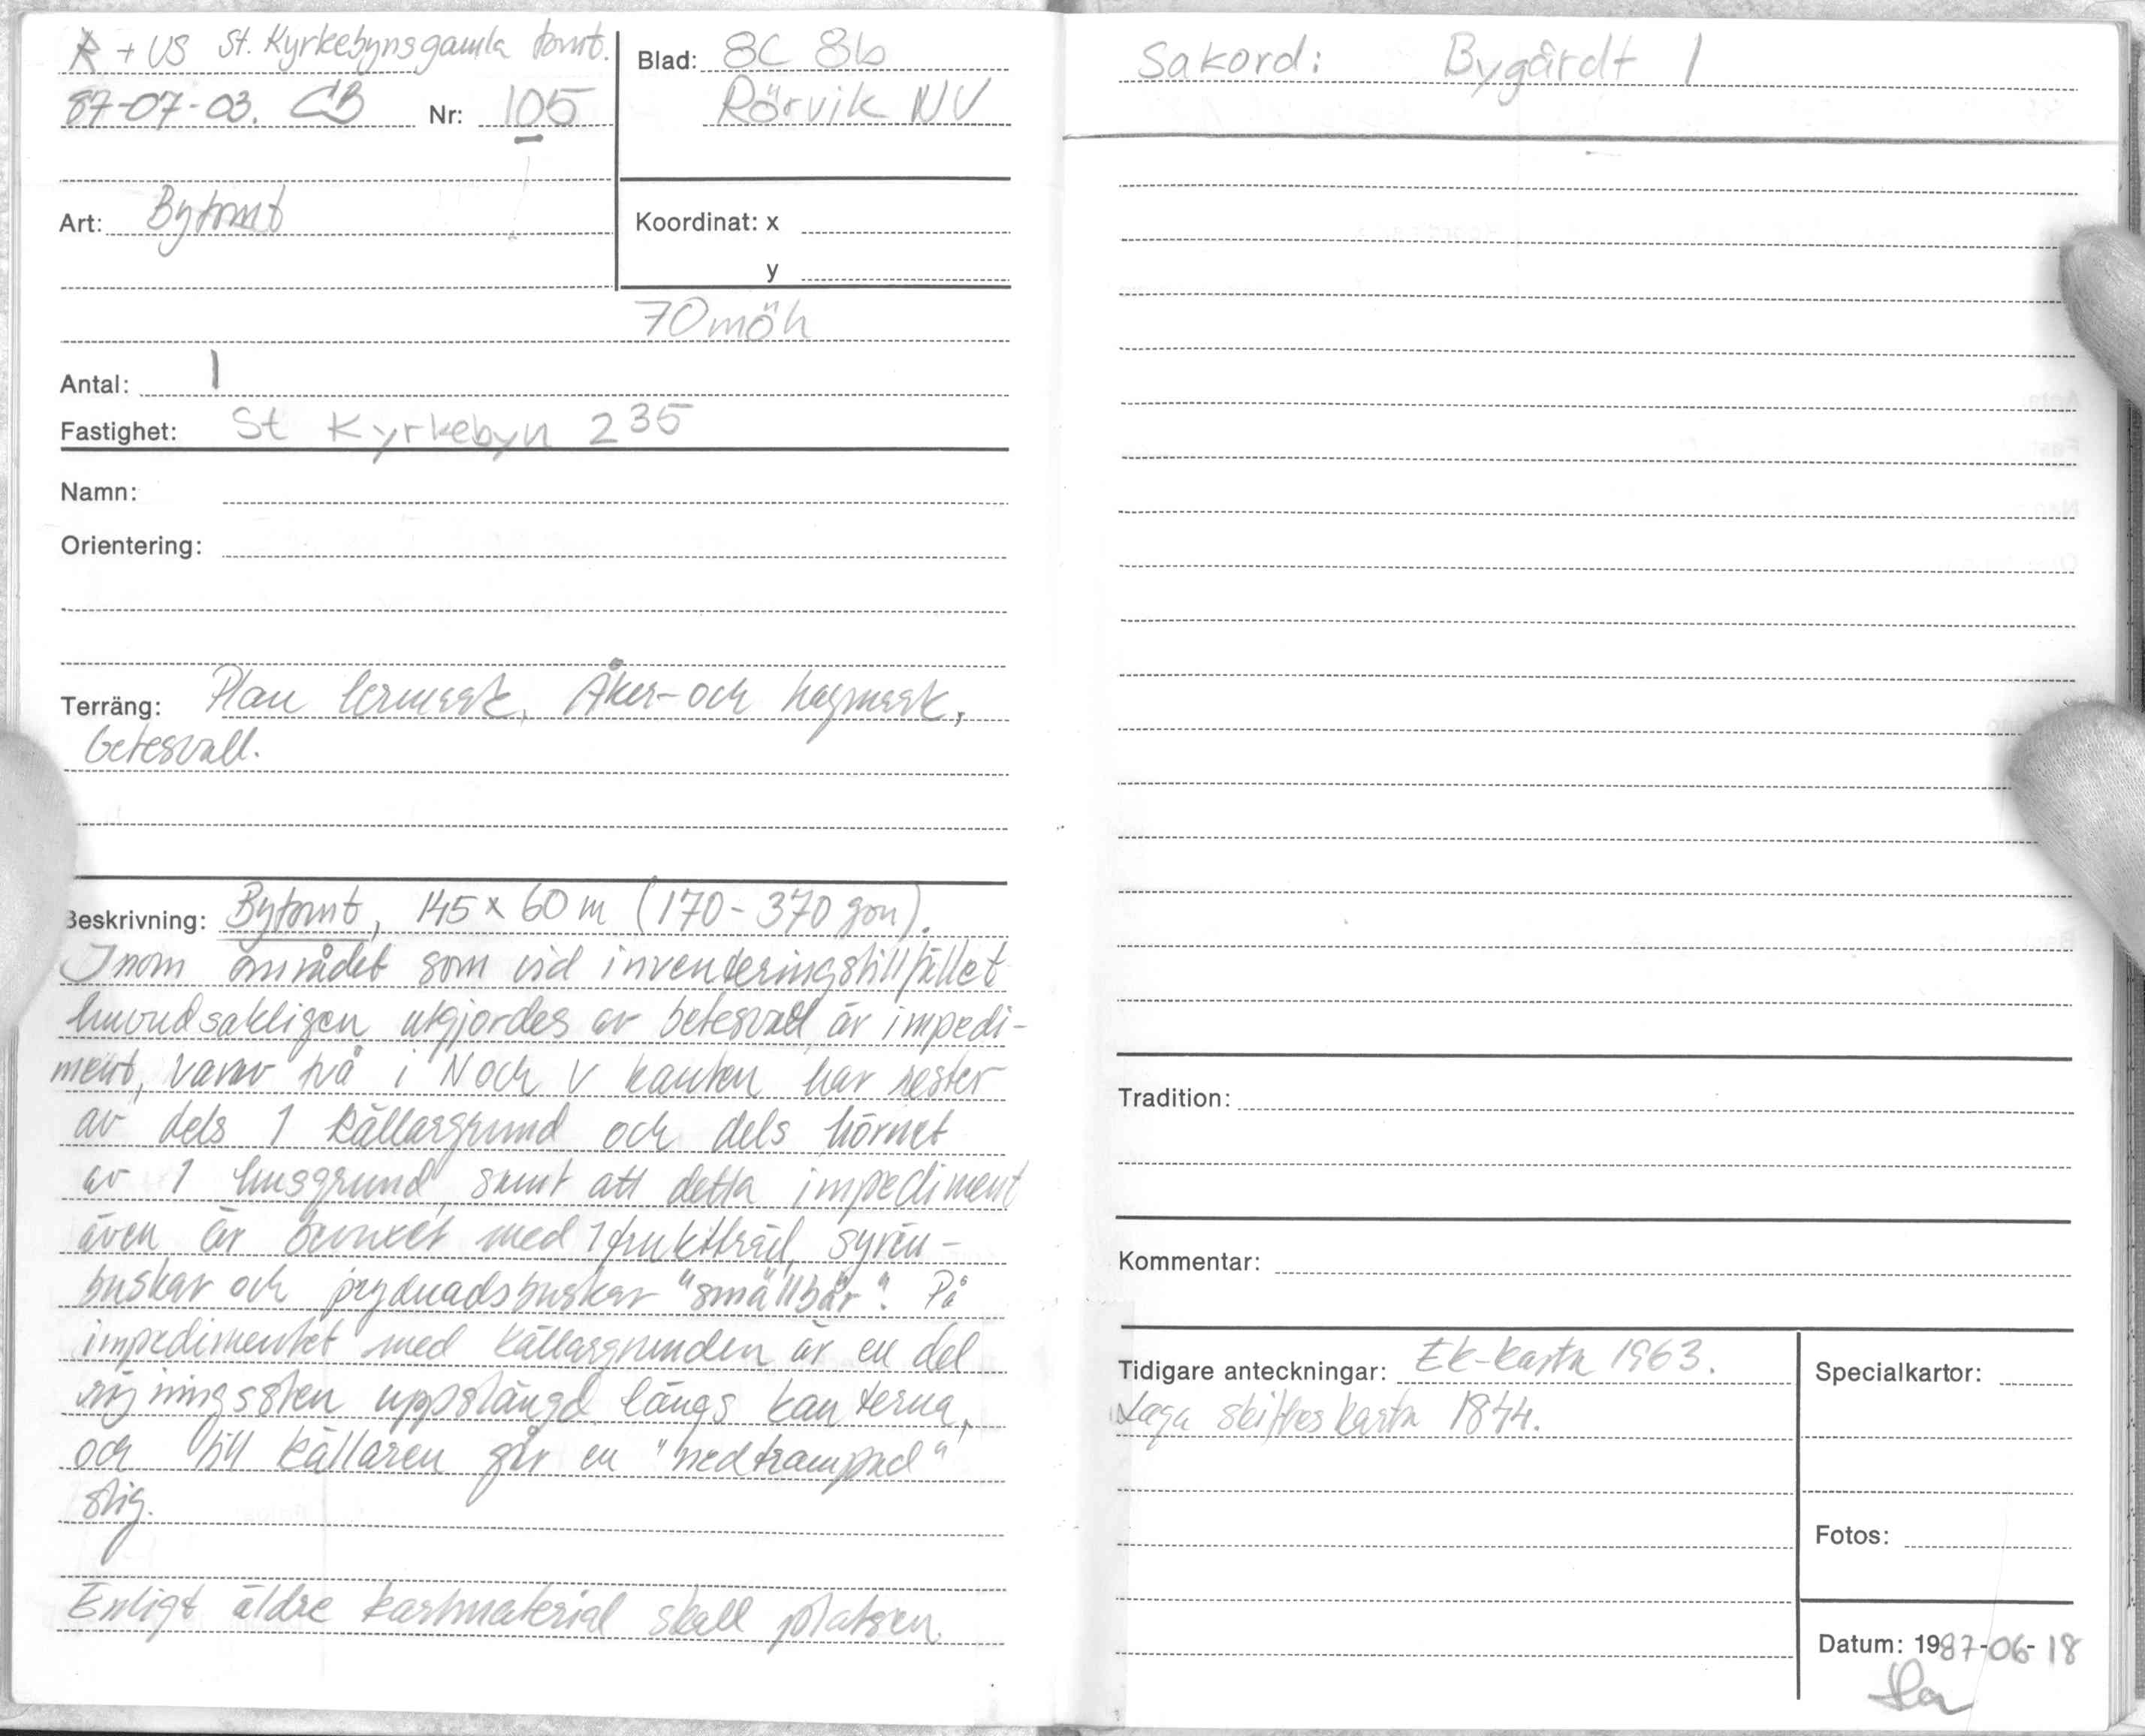 R + US St. Kyrkebyns gamla tomt.
87-07-03. CB Nr: 105
Blad: 8C 8b
Rörvik NV
Art: Bytomt
Koordinat: x
y
70 möh
Antal: 1
Fastighet: St Kyrkebyn 235
Namn:
Orientering:
Terräng: Plan lermark, Åker- och hagmark,
betesvall.
Beskrivning: Bytomt, 145 x 60 m (170-370 gon).
Inom området som vid inventeringstillfället
huvudsakligen utgjordes av betesvall, är impedi-
ment, varav två i N och V kanten har rester
av dels 1 källargrund och dels hörnet
av 1 husgrund, samt att detta impediment
även är bevuxet med 1 fruktträd, syrén-
buskar och prydnadsbuskar "smällbär". På
impedimentet med källargrunden är en del
röjningssten uppslängd längs kanterna,
och till källaren går en "nedtrampad"
stig.
Enligt äldre kartmaterial skall platsen
Sakord: Bygårdt 1
Tradition:
Kommentar:
Tidigare anteckningar: Ek-karta 1963.
Laga skifteskarta 1844.
Specialkartor:
Fotos:
Datum: 1987-06-18